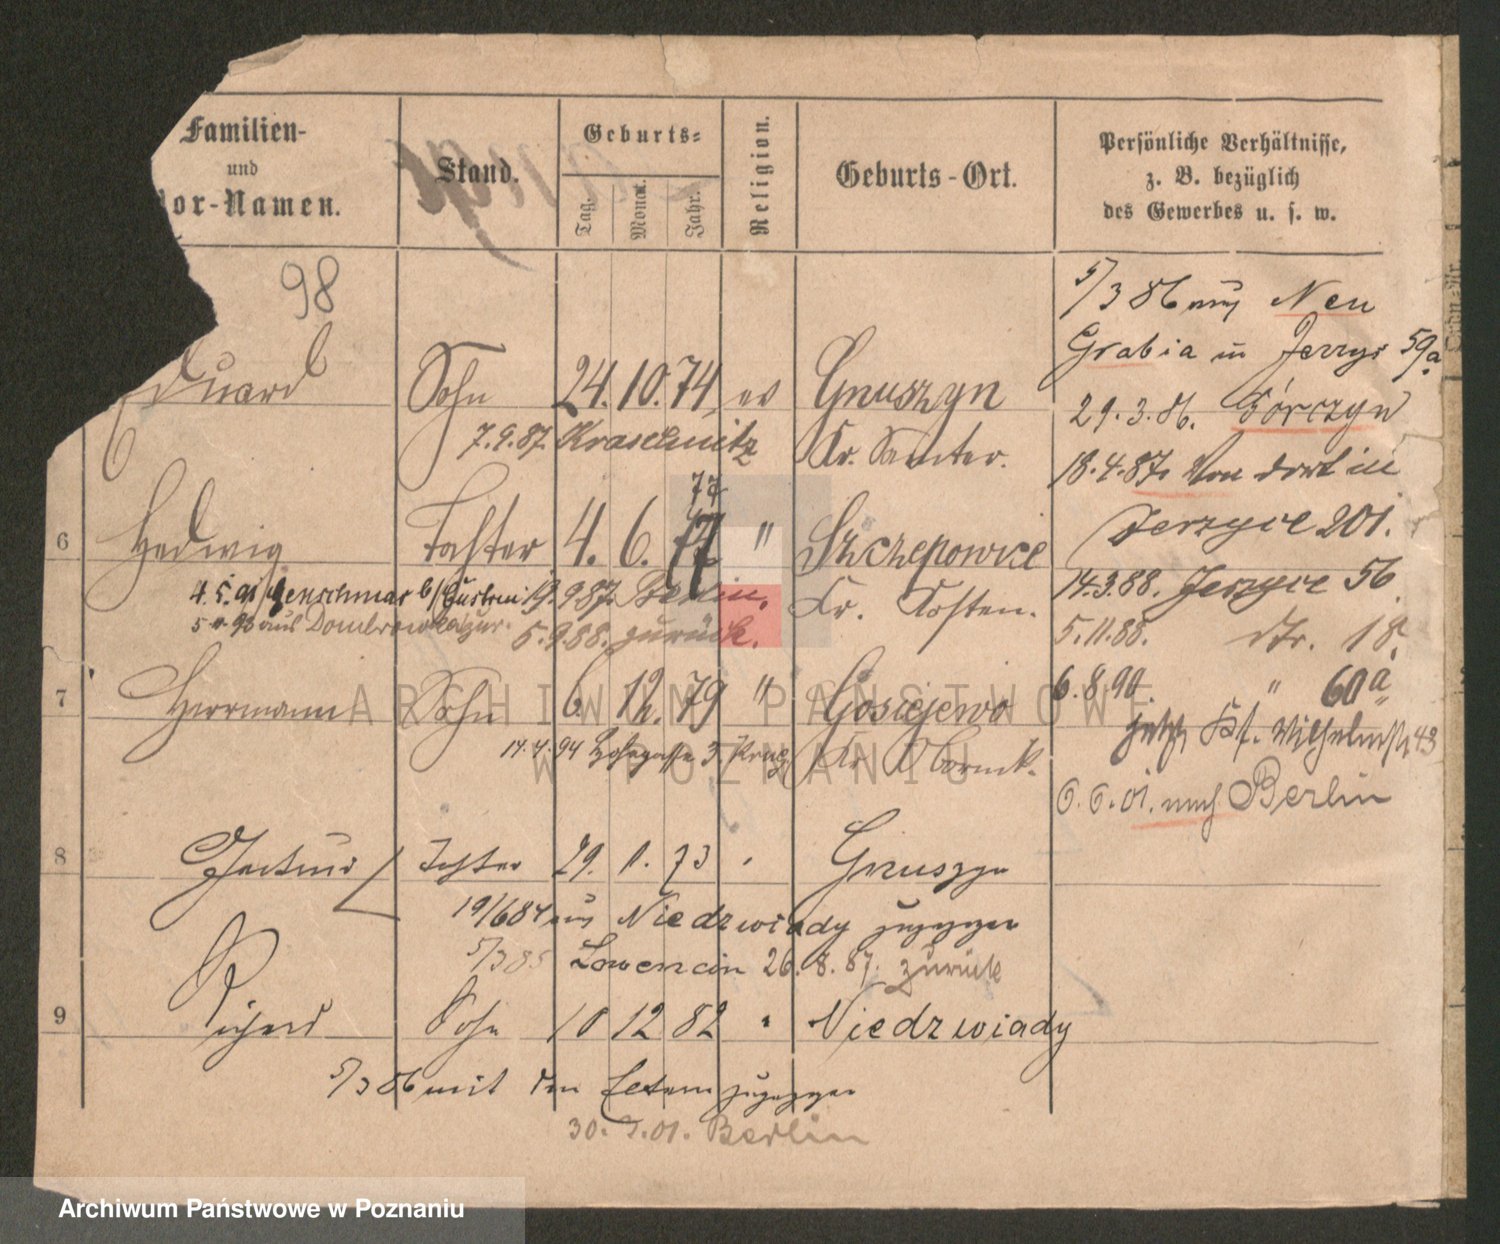 Familien-
und
Vor-Namen.
Stand.
Geburts-
Tag.
Monat.
Jahr.
Religion.
Geburts-Ort.
Persönliche Verhältnisse,
z. B. bezüglich
des Gewerbes u. s. w.
98
Eduard Sohn 24. 10. 74 ev Gnuszyn
7.9.87. Kraschnitz Kr. Samter.
6 Hedwig Tochter 4. 6. 77 77 " Szczepowice
4.5.91 b/Custrin 19.9.87. Berlin. Kr. Kosten.
aus Dombrowka zur. 5.9.88. zurück.
7 Herrmann Sohn 6. 12. 79 " Gosciejewo
14.4.94 Hohegasse 3. Krug Kr. Obornik.
8 Tochter 29. 1. 73 Gnuszyn
19/6 84 aus Niedzwiady zugezogen
5/3 85 Lowencin 26.8.87. zurück
9 Richard Sohn 10 12 82 " Niedzwiady
5/3 86 mit den Eltern zugezogen
30. 01. Berlin
5/3 86 aus Neu
Grabia in Jerzyc 59a.
29.3.86. Górczyn
18.4.87. Von dort in
Jerzyce 201.
14.3.88. Jerzyce 56
5.11.88. dto. 18.
6.8.90. " 60a
jetzt Wilhelmstr. 43
6.6.01. nach Berlin
ARCHIWUM PAŃSTWOWE
W POZNANIU
Archiwum Państwowe w Poznaniu